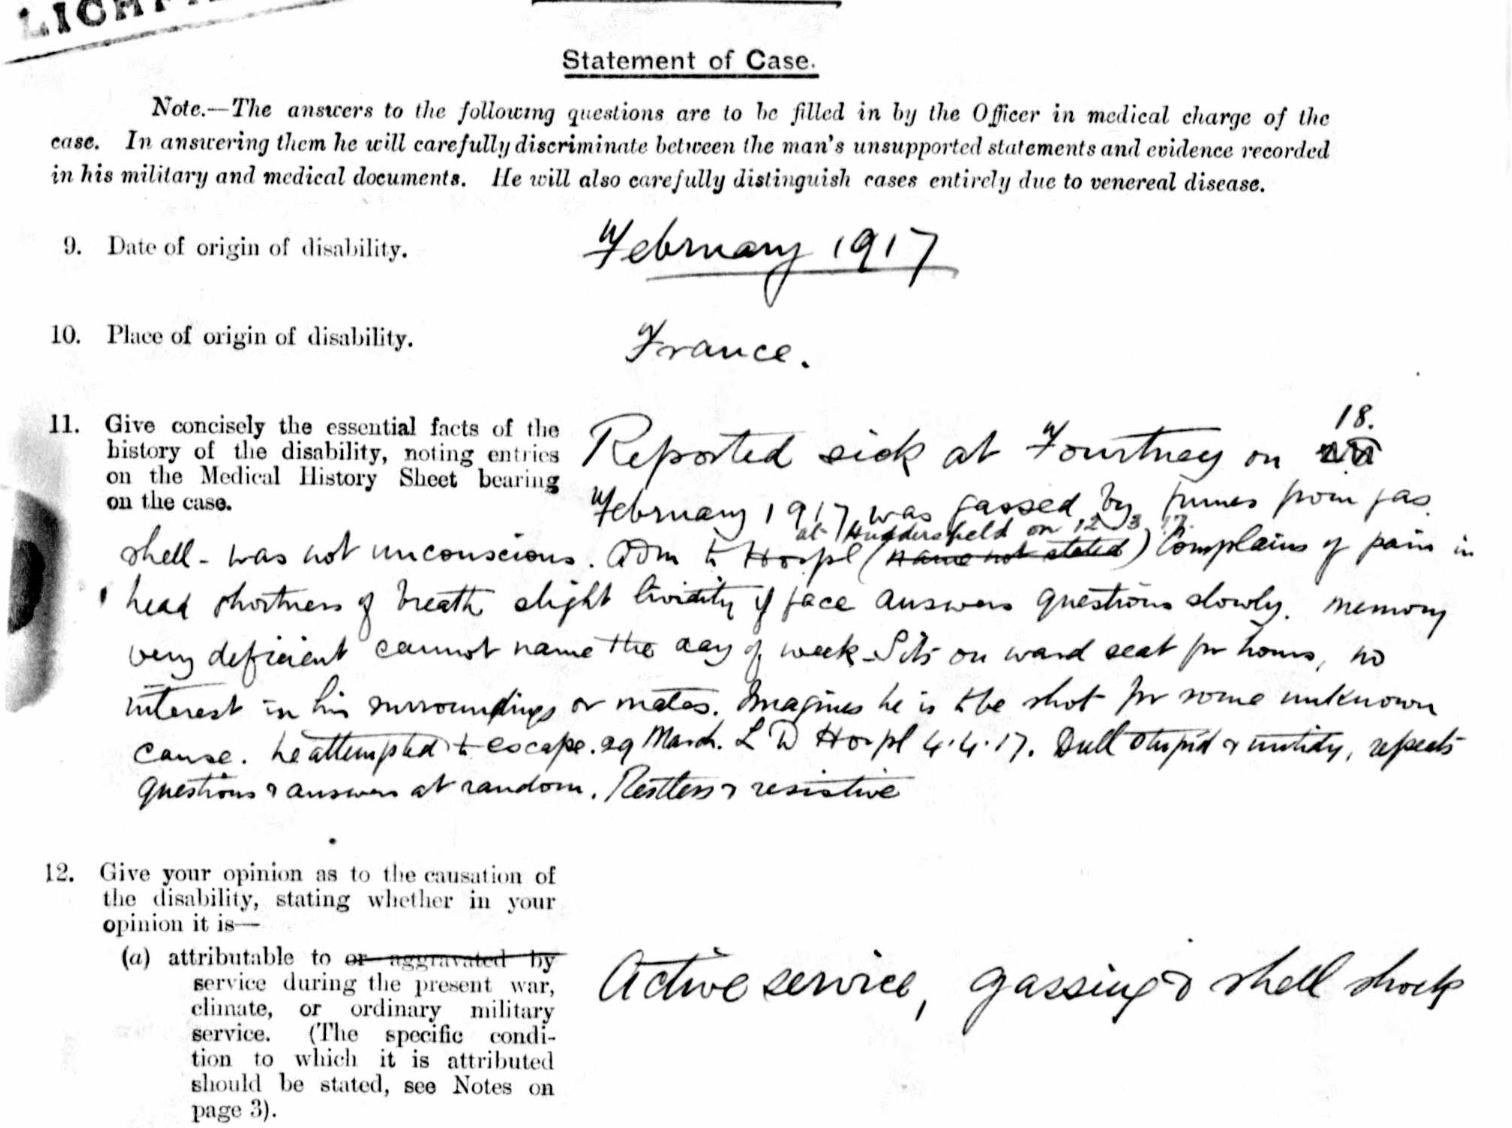 LICHF
Statement of Case.
Note.—The answers to the following questions are to be filled in by the Officer in medical charge of the
case. In answering them he will carefully discriminate between the man's unsupported statements and evidence recorded
in his military and medical documents. He will also carefully distinguish cases entirely due to venereal disease.
9. Date of origin of disability. February 1917
10. Place of origin of disability. France.
18.
11. Give concisely the essential facts of the
history of the disability, noting entries
on the Medical History Sheet bearing
on the case.
Reported sick at Fourtney on
February 1917 was gassed by fumes from gas
at Huddersfield on 12 3 17.
shell - was not unconscious. Adm to Hospl (name not stated) Complains of pain in
head shortness of breath slight lividity of face answers questions slowly. memory
very deficient cannot name the day of week. Sits on ward seat for hours, no
interest in his surroundings or mates. Imagines he is to be shot for some unknown
cause. he attempted to escape. 29 March. L D Hospl 4.4.17. Dull stupid & untidy, repeats
questions & answers at random. Restless & resistive
12. Give your opinion as to the causation of
the disability, stating whether in your
opinion it is—
(a) attributable to or aggravated by
service during the present war,
climate, or ordinary military
service. (The specific condi-
tion to which it is attributed
should be stated, see Notes on
page 3).
Active service, gassing & shell shock